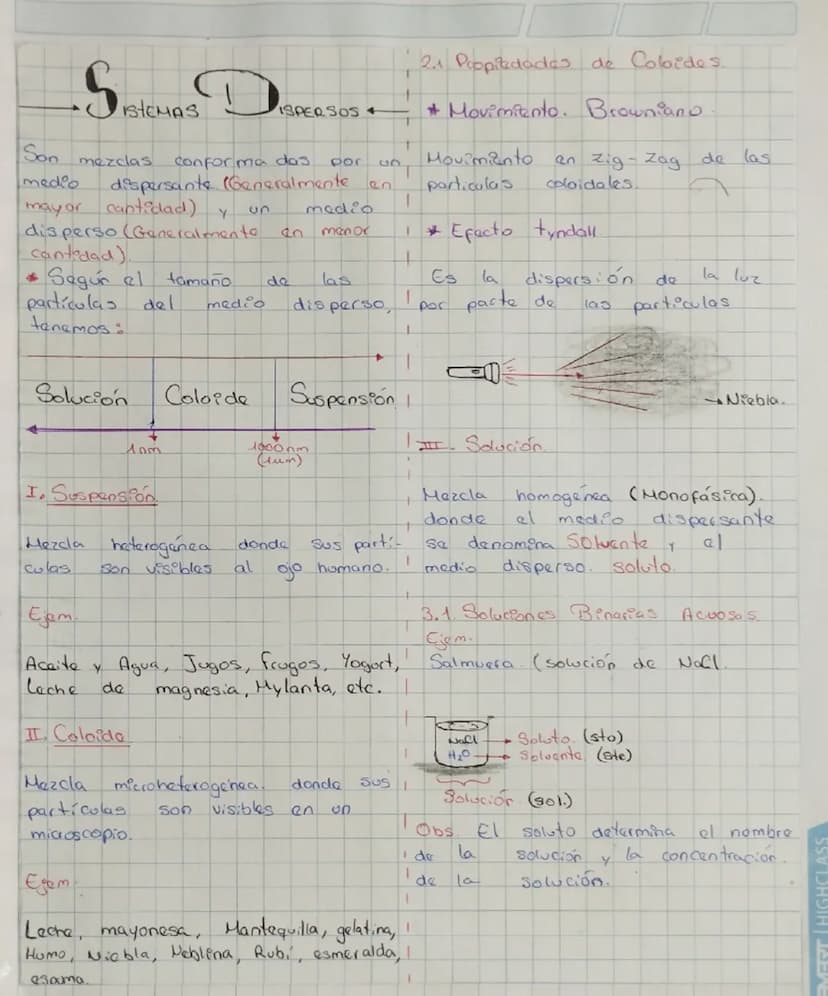 SISTEMAS DISPERSOS
Son mezclas conformadas por un
medio dispersante (Generalmente en
mayor cantidad) y un medio
disperso (Generalmente en menor
cantidad).
* Según el tamaño de las
partículas del medio disperso,
tenemos:
Solución Coloide Suspensión
1nm 1000nm
(1um)
I. Suspensión
Mezcla heterogénea donde sus partí-
culas son visibles al ojo humano.
Ejem.
Aceite y Agua, Jugos, frugos, Yogort,
Leche de magnesia, Mylanta, etc.
II. Coloide
Mezcla microheterogénea. donde sus
partículas son visibles en un
microscopio.
Ejem.
Leche, mayonesa, Mantequilla, gelatina,
Humo, Niebla, Neblena, Rubí, esmeralda,
esama.
2.1 Propiedades de Coloides.
* Movimiento. Browniano.
Movimiento en zig-zag de las
particulas coloidales.
* Efecto tyndall
Es la dispersión de la luz
por parte de las particulas
→ Niebla.
III. Solución.
Mezcla homogénea (Monofásica).
donde el medio dispersante
se denomina Solvente y el
medio disperso. soluto.
3.1. Soluciones Binarias Acuosas.
Ejem.
Salmuera. (solución de NaCl.
NaCl → Soluto. (sto)
H₂O → Solvente (ste)
Solución (sol.)
Obs El soluto determina el nombre
de la solución y la concentración.
de la solución.
HIGHCLASS